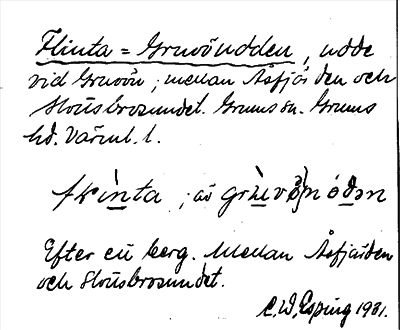 Flinta = Gruvöudden, udde
vid Gruvön; mellan Åsfjärden och
Slottsbrosundet. Grums sn. Grums
hd. Värml. l.
Efter ett berg. Mellan Åsfjärden
och Slottsbrosundet.
C. W. Esping 1931.